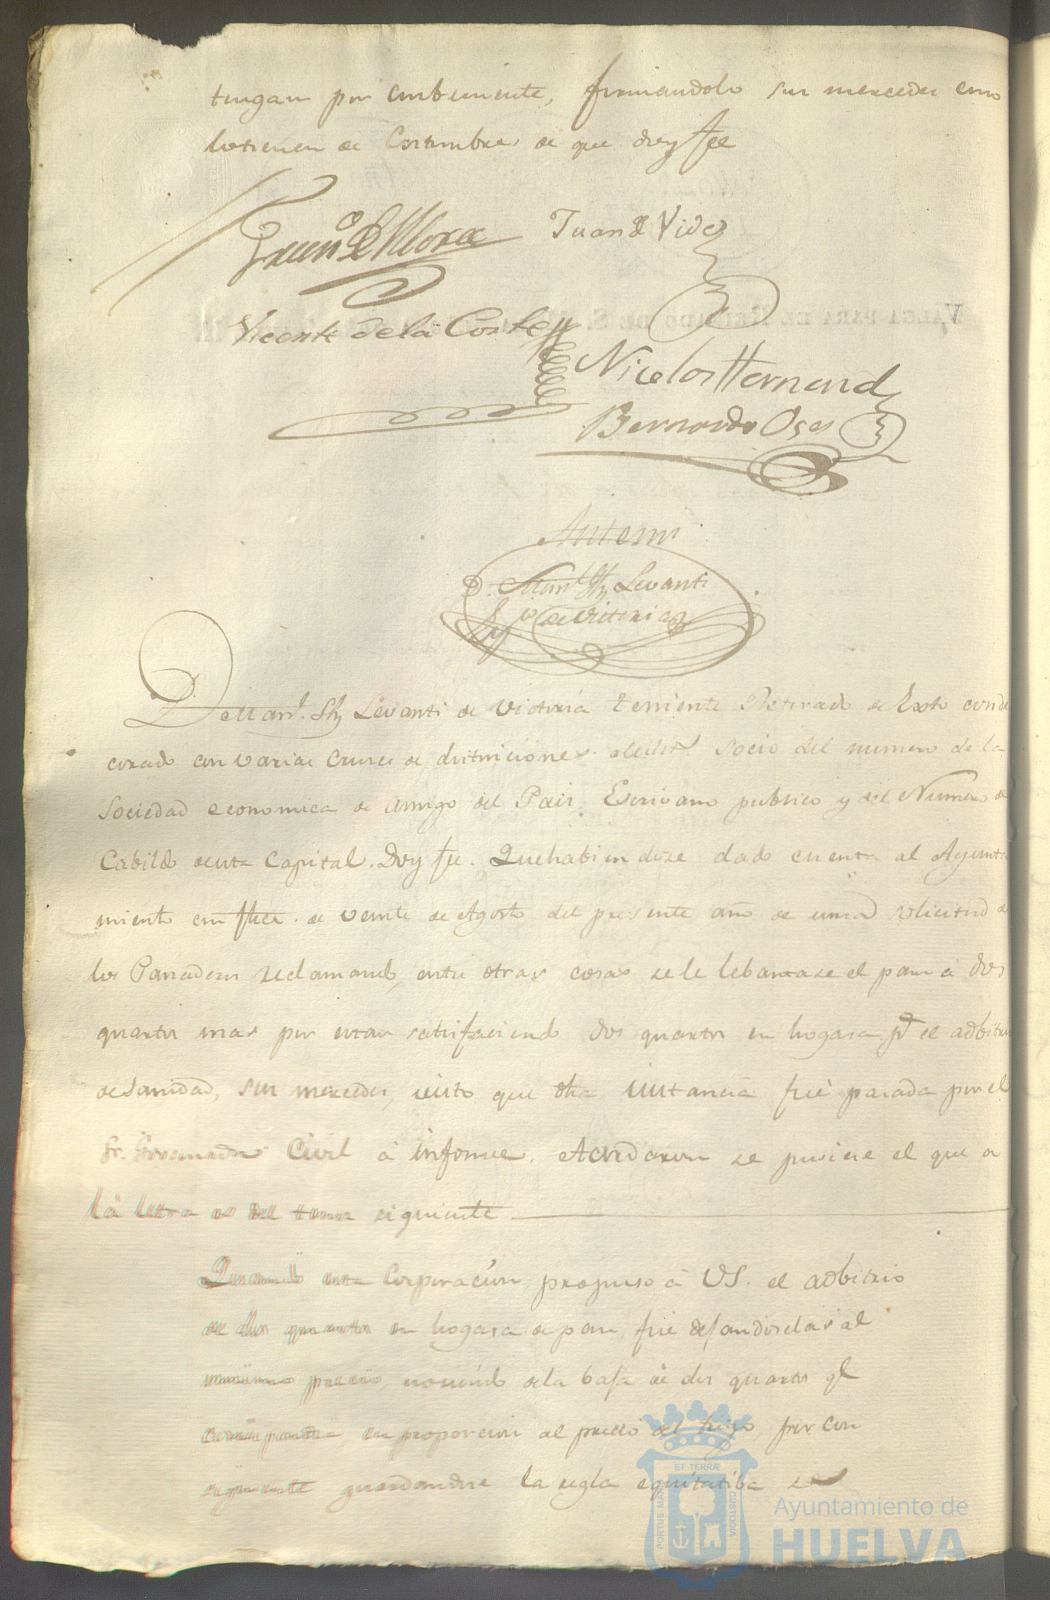 tengan por combeniente, firmandolo sus mercedes como
lo tienen de Costumbre, de que doy fee
Fran.co de Mora Juan de Vides
VALGA PARA EL REINADO DE S.
Vicente de la Corte
Nicolas Hernand
Bernardo Oses
Antemi
D. Man.l Levanti
de Vitoria
D. Man.l Levanti de Victoria teniente Retirado de Exto conde
corado con varias cruces de distinciones socio del numero de la
Sociedad economica de Amigo del Pais, Escrivano publico y del Numero
Cabildo de esta Capital. Doy fee. Que habiendose dado cuenta al Ayunta
miento en de veinte de Agosto del presente año de una solicitud de
los Panaderos reclamando, entre otras cosas se le lebantase el pan á dos
quartos mas por estar satisfaciendo dos quartos en hogasa p.r el adbitrio
de sanidad, sus mercedes, visto que dha instancia fué pasada por el
Sr. Governador Civil á informe, Acordaron se pusiese el que a
la letra es del tenor siguiente
Quando esta Corporacion propuso á VS. el adbitrio
de dos quartos en hogasa de pan, fue dejandoselas al
mismo precio, no siendo de la baja de dos quartos q.e
corresponden, en proporcion al precio del trigo, por con
siguiente guardandose la regla equitatiba se
PORTUS MARIS ET TERRAE CUSTODIA
Ayuntamiento de
HUELVA